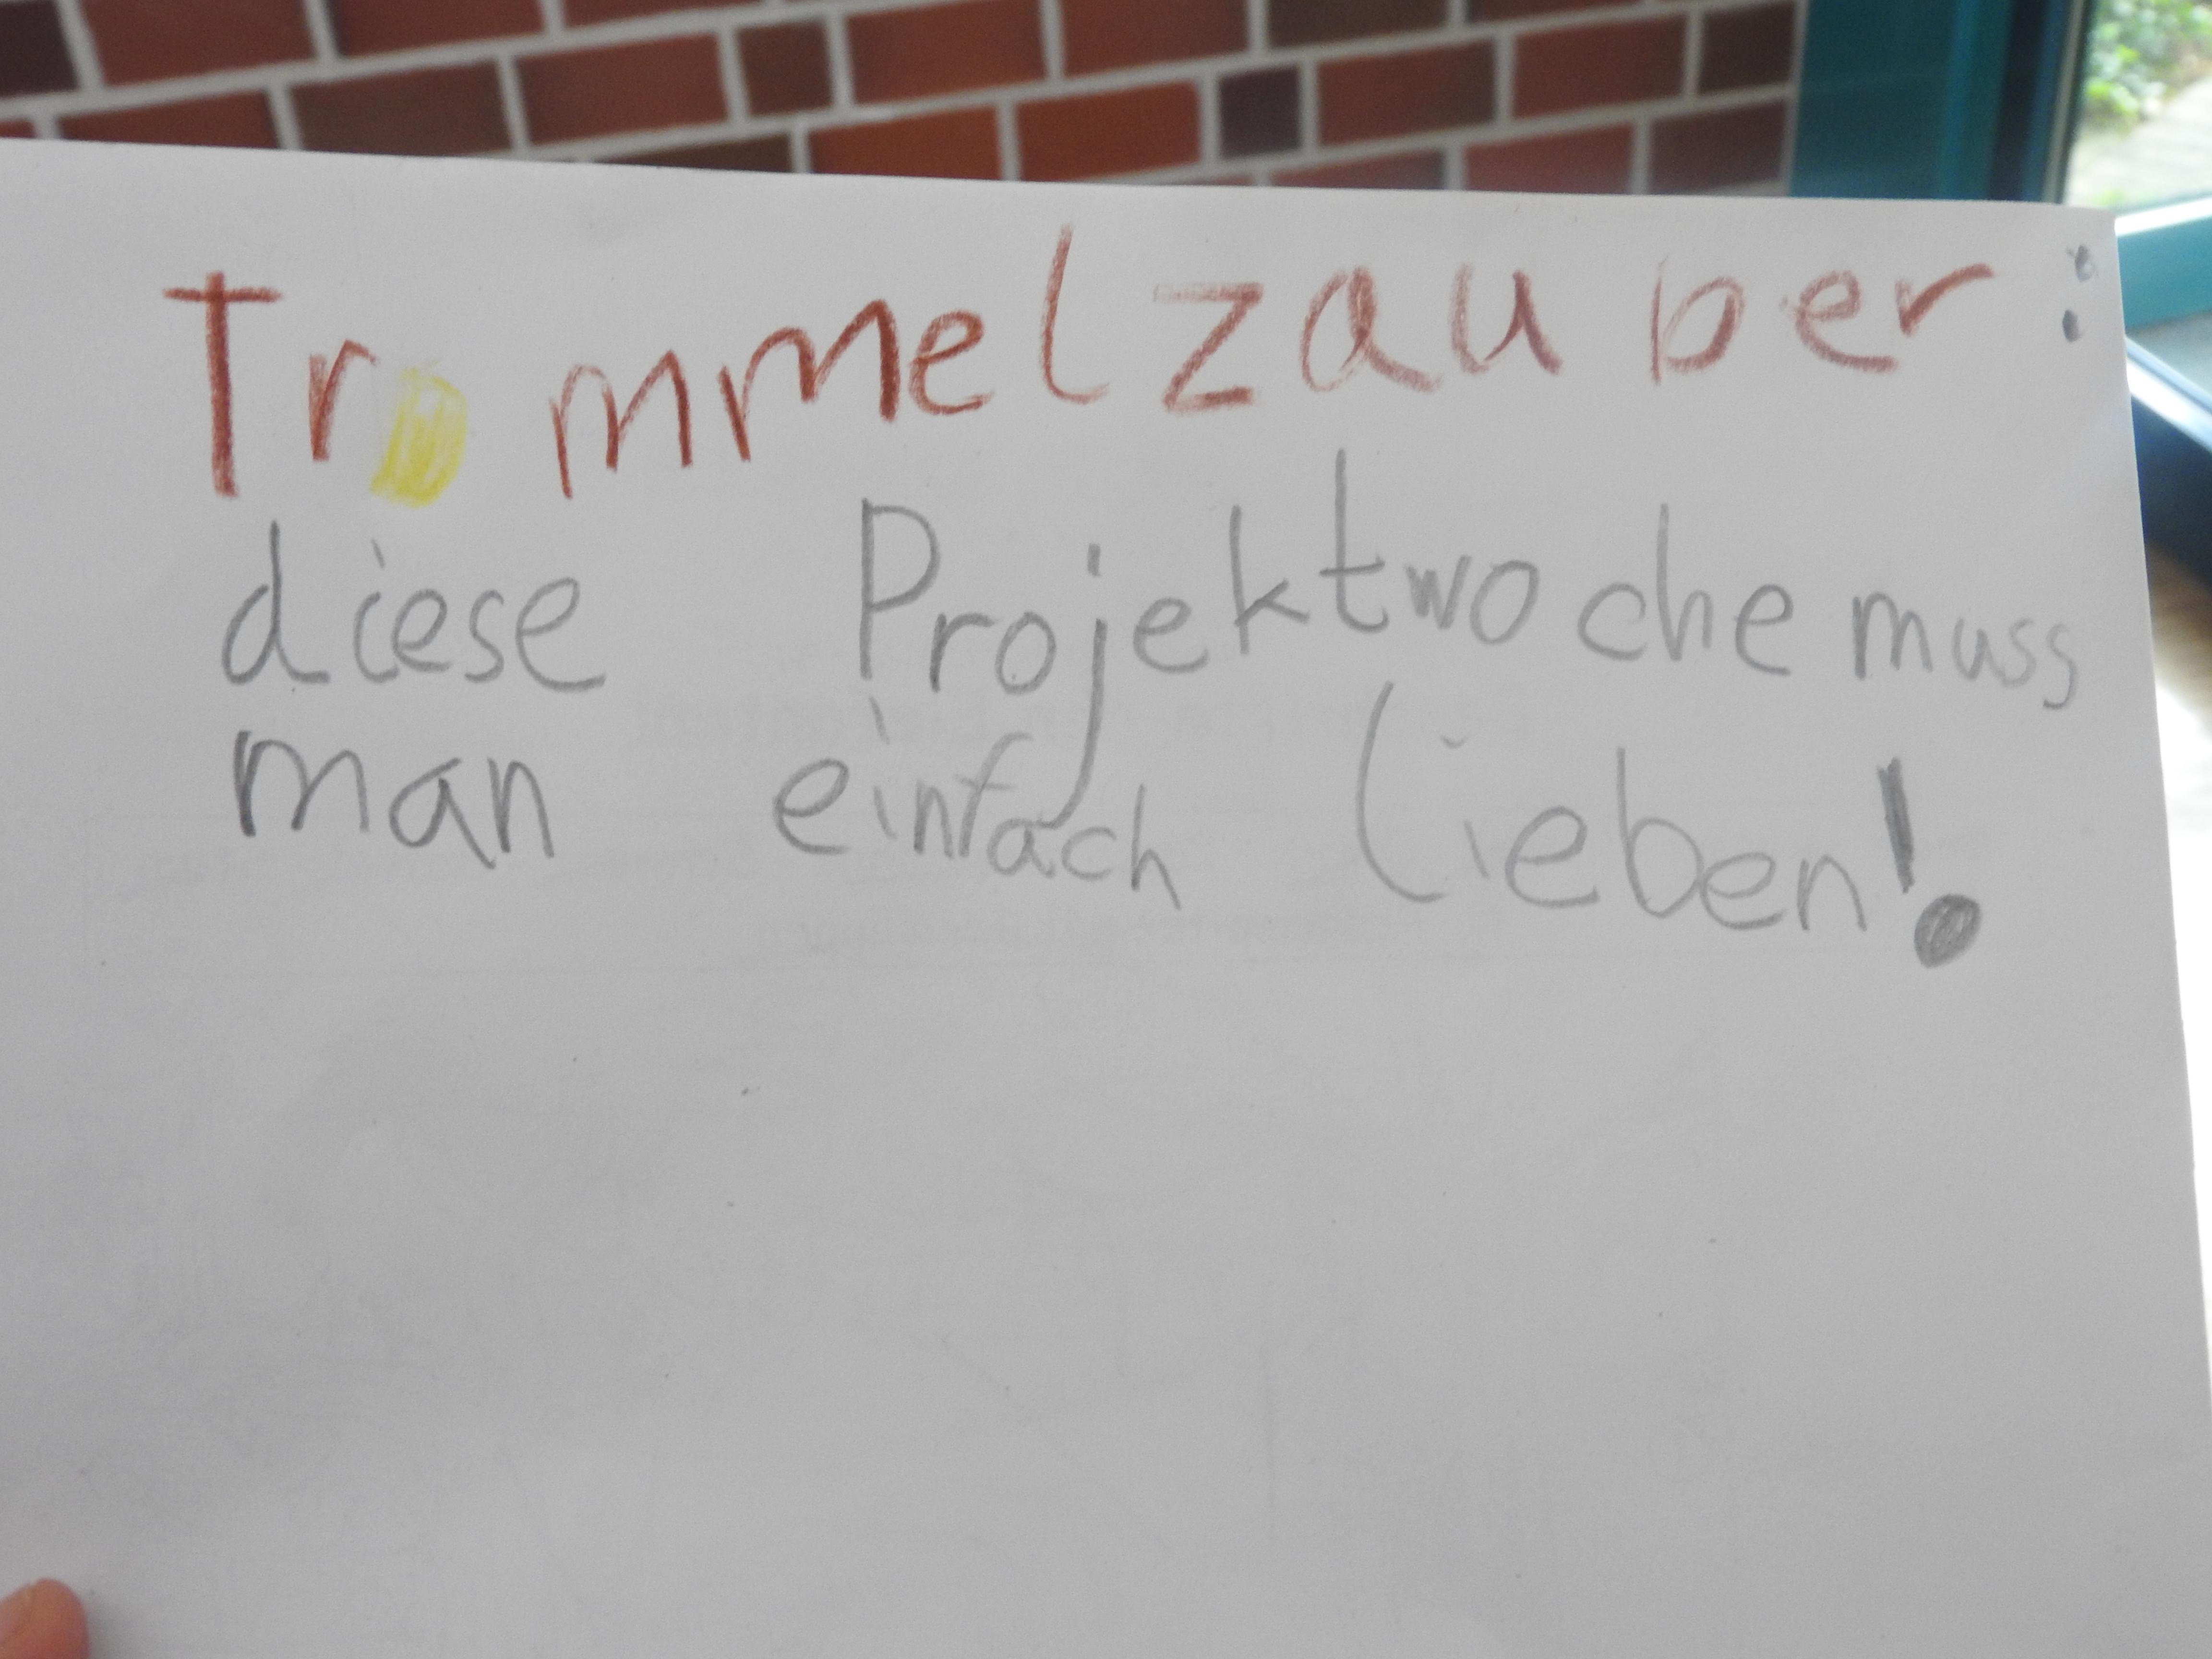 Trommelzauber:
diese Projektwoche muss
man einfach lieben!